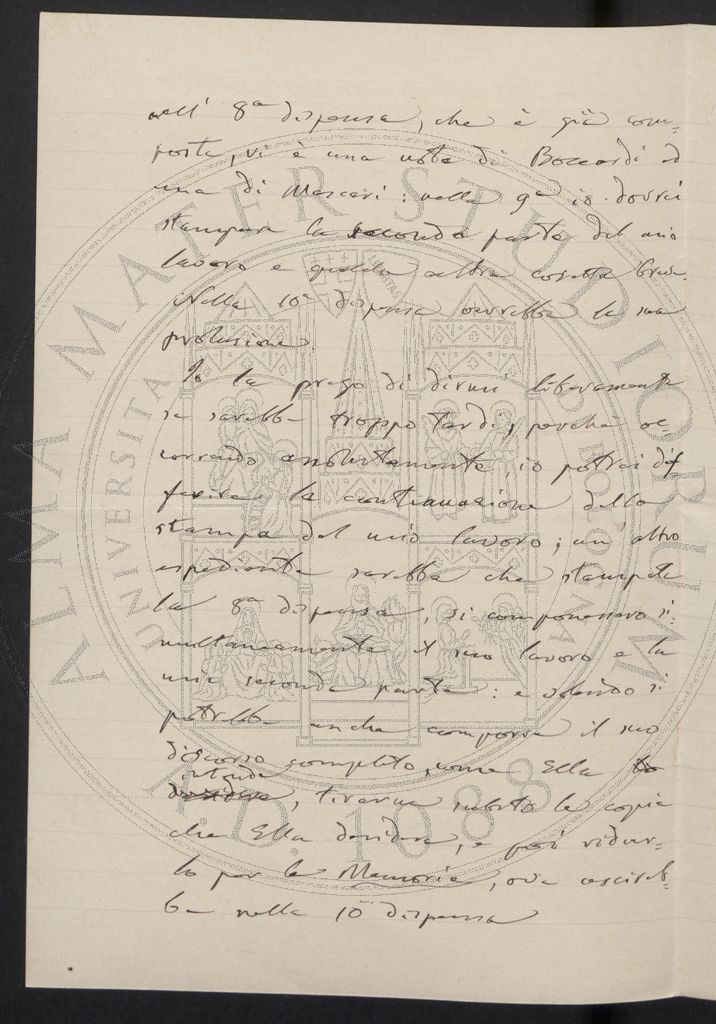 nell' 8ª dispensa, che è già com-
posta, vi è una nota di Boccardi ed
una di Mascari: nella 9ª io dovrei
stampare la seconda parte del mio
lavoro e qualche altra cosetta breve.
Nella 10ª dispensa verrebbe la sua
prolusione.
Io la prego di dirmi liberamente
se sarebbe troppo tardi, perchè oc-
correndo assolutamente, io potrei dif
ferire la continuazione della
stampa del mio lavoro; un altro
espediente sarebbe che stampata
la 8ª dispensa, si componessero si-
multaneamente il suo lavoro e la
mia seconda parte: e volendo si
potrebbe anche comporre il suo
discorso completo, come Ella
intende, tirarne subito le copie
che Ella desidera, e poi ridur-
lo per le Memorie, ove uscireb-
be nella 10ª dispensa
ALMA MATER STUDIORUM
UNIVERSITA DI BOLOGNA
A.D. 1088